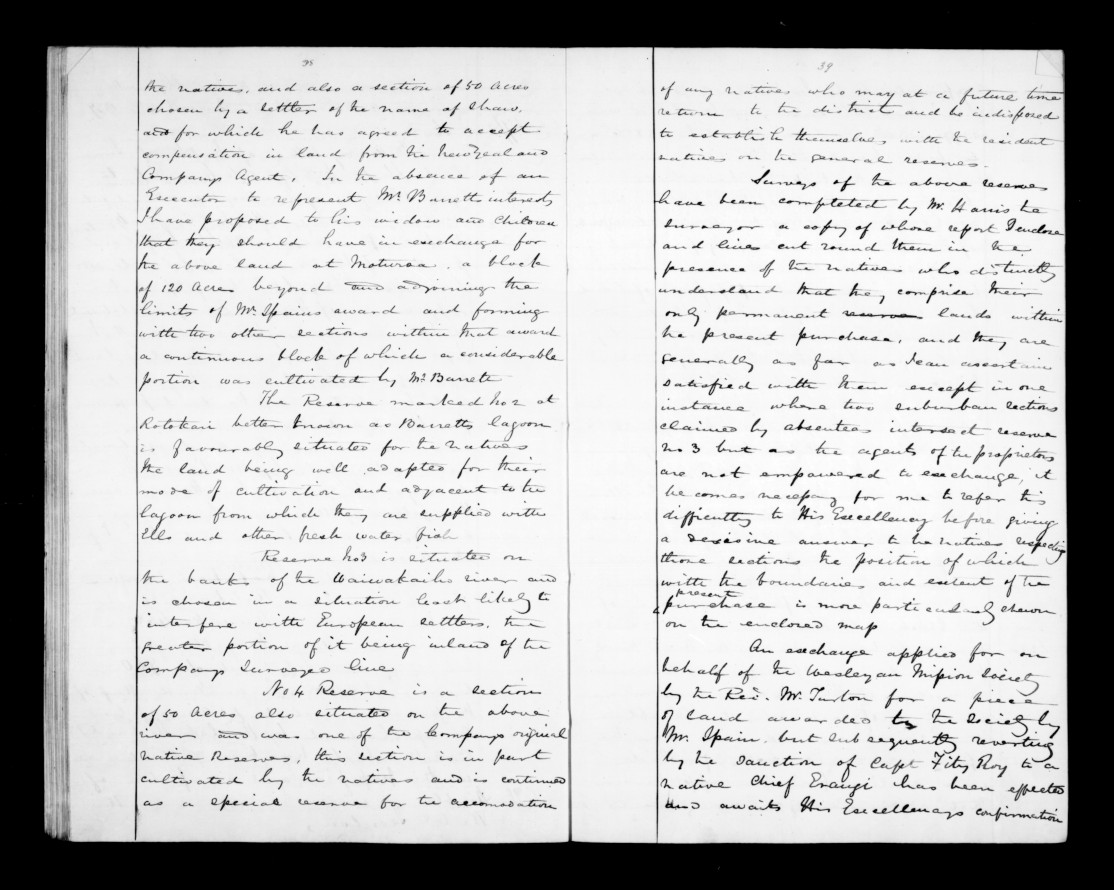 38
the natives, and also a section of 50 acres
chosen by a settler of the name of Shaw,
and for which he has agreed to accept
compensation in land from the New Zealand
Companys Agent. In the absence of an
Executor to represent Mr. Barretts interests
I have proposed to his widow and children
that they should have in exchange for
the above land at Moturoa, a block
of 120 Acres beyond and adjoining the
limits of Mr. Spains award and forming
with two other sections within that award
a continuous block of which a considerable
portion was cultivated by Mr. Barrett
The Reserve marked No 2 at
Rotokari better known as Barretts lagoon
is favourably situated for the natives
the land being well adapted for their
mode of cultivation and adjacent to the
lagoon from which they are supplied with
Eels and other fresh water fish
Reserve No 3 is situated on
the banks of the Waiwakaiho river and
is chosen in a situation least likely to
interfere with European settlers, the
greater portion of it being inland of the
Companys Surveyed line
No 4 Reserve is a section
of 50 Acres also situated on the above
river and was one of the Companys original
native Reserves, this section is in part
cultivated by the natives and is continued
as a special reserve for the accomodation
39
of any natives who may at a future time
return to the district and be indisposed
to establish themselves with the resident
natives on the general reserves.
Surveys of the above reserves
have been completed by Mr. Harris the
surveyor a copy of whose report I enclose
and lines cut round them in the
presence of the natives who distinctly
understand that they comprise their
only permanent reserve lands within
the present purchase, and they are
generally as far as I can ascertain
satisfied with them except in one
instance where two suburban sections
claimed by absentees intersect reserve
no 3 but as the agents of the proprietors
are not empowered to exchange, it
becomes necessary for me to refer this
difficulty to His Excellency before giving
a decisive answer to the natives respecting
those sections the position of which
with the boundaries and extent of the
present
purchase is more particularly shewn
on the enclosed map
An exchange applied for on
behalf of the Wesleyan Mission Society
by the Rev. Mr. Turton for a piece
of land awarded to the Society by
Mr. Spain, but subsequently reverting
by the sanction of Capt Fitz Roy to a
native Chief Erangi has been effected
and awaits His Excellencys confirmation